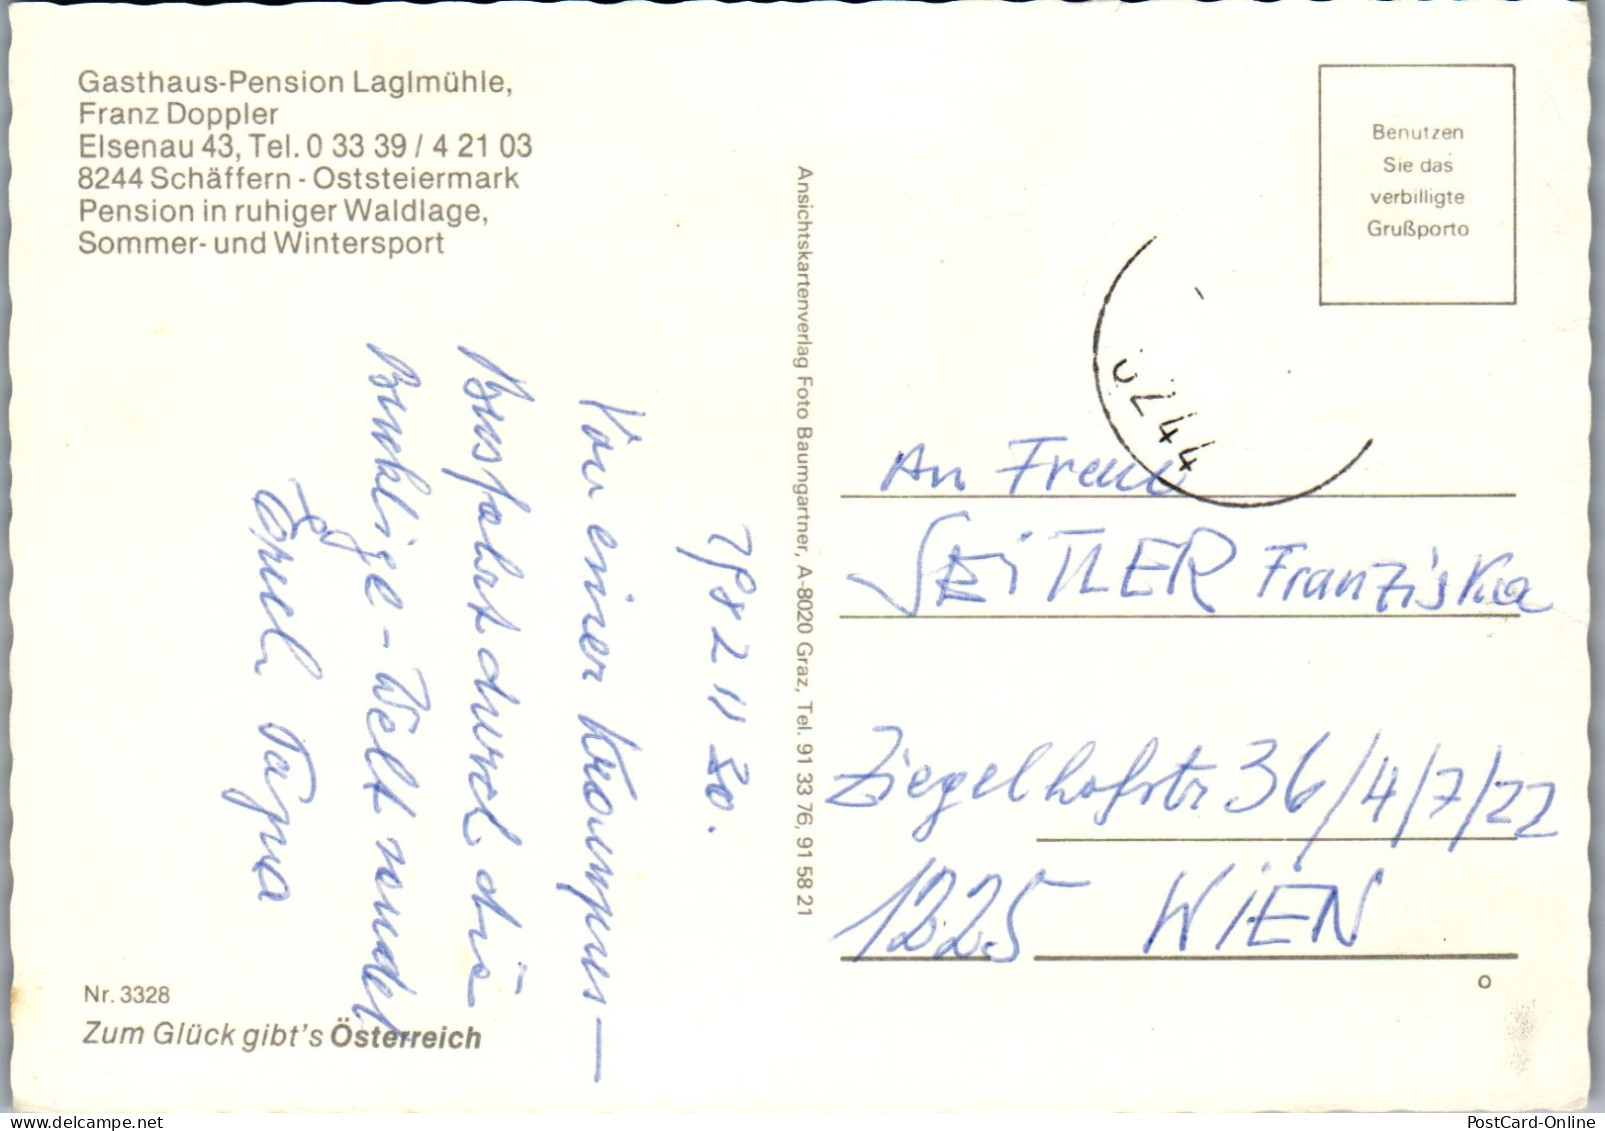 Gasthaus-Pension Laglmühle,
Franz Doppler
Elsenau 43, Tel. 0 33 39 / 4 21 03
8244 Schäffern - Oststeiermark
Pension in ruhiger Waldlage,
Sommer- und Wintersport
1982 11 30.
Von einer Krampus-
Busfahrt durch die
Bucklige-Welt sendet
Papa
Nr. 3328
Zum Glück gibt's Österreich
Ansichtskartenverlag Foto Baumgartner, A-8020 Graz, Tel. 91 33 76, 91 58 21
Benutzen
Sie das
verbilligte
Grußporto
8244
An Frau
SEITLER Franziska
Ziegelhofstr 36/4/7/22
1225 WIEN
o
PostCard-Online